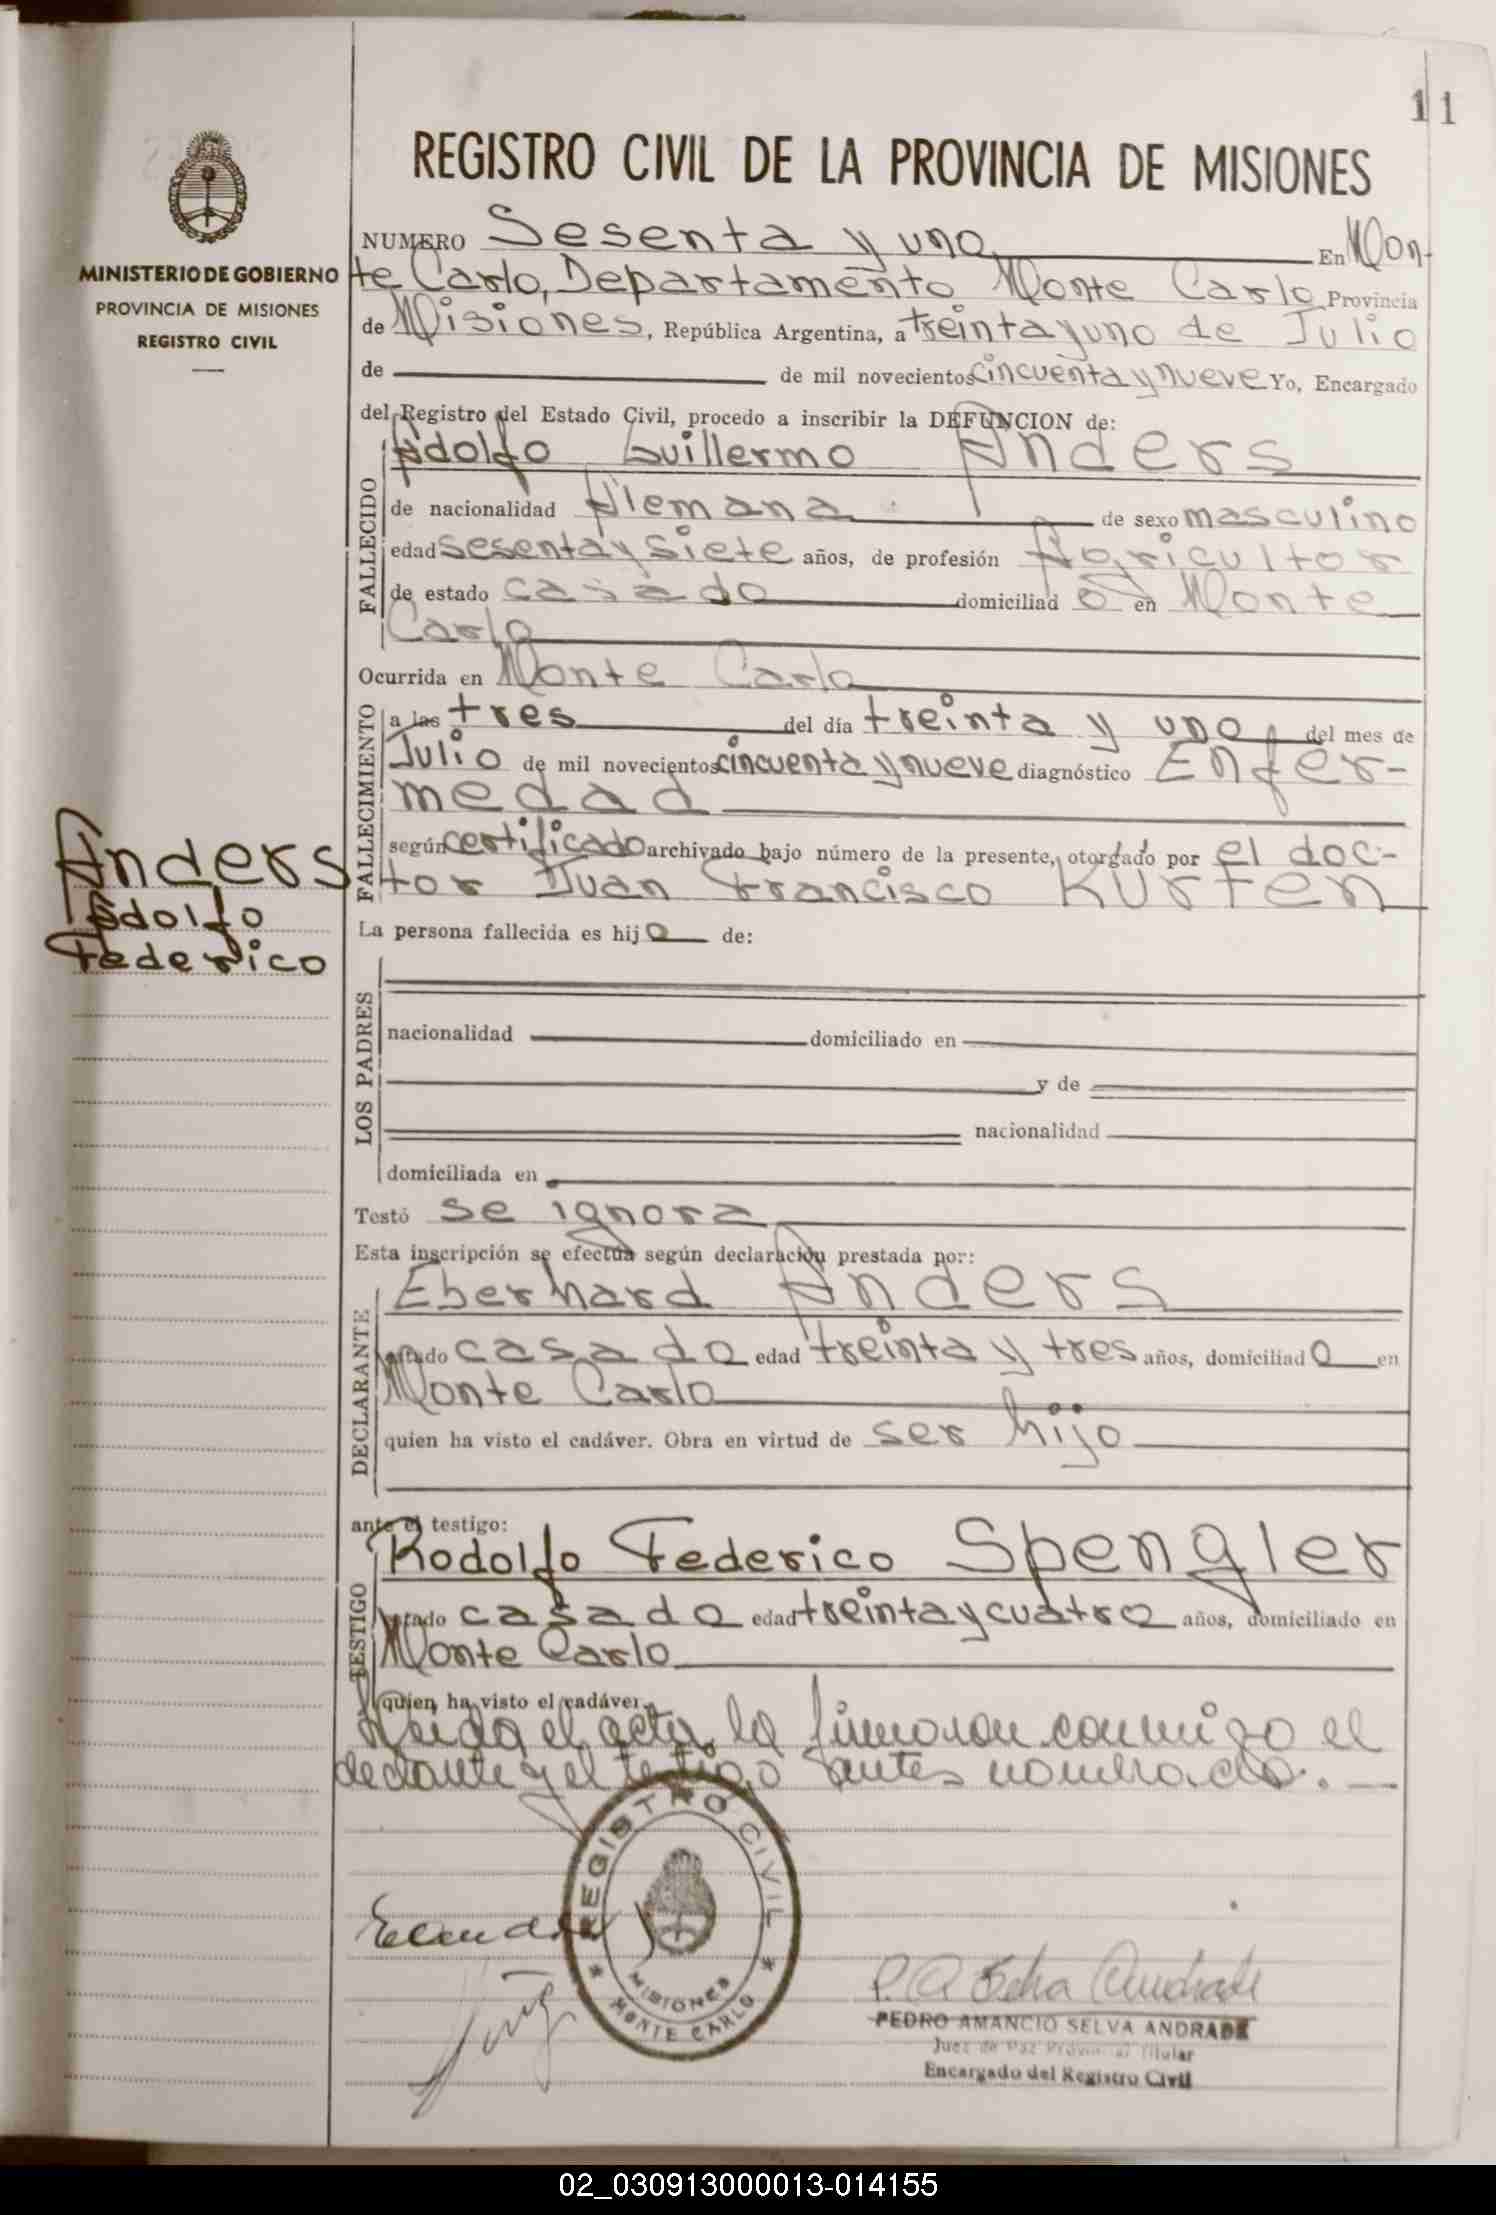 11
REGISTRO CIVIL DE LA PROVINCIA DE MISIONES
MINISTERIO DE GOBIERNO
PROVINCIA DE MISIONES
REGISTRO CIVIL
NUMERO Sesenta y uno En Mon-
te Carlo, Departamento Monte Carlo Provincia
de Misiones, República Argentina, a treinta y uno de Julio
de de mil novecientos cincuenta y nueve Yo, Encargado
del Registro del Estado Civil, procedo a inscribir la DEFUNCION de:
FALLECIDO
Adolfo Guillermo Anders
de nacionalidad Alemana de sexo masculino
edad sesenta y siete años, de profesión Agricultor
de estado casado domiciliad o en Monte
Carlo
Ocurrida en Monte Carlo
FALLECIMIENTO
a las tres del día treinta y uno del mes de
Julio de mil novecientos cincuenta y nueve diagnóstico Enfer-
medad
según certificado archivado bajo número de la presente, otorgado por el doc-
tor Juan Francisco Kurten
Anders
Adolfo
Federico
La persona fallecida es hijo de:
LOS PADRES
nacionalidad domiciliado en
y de
nacionalidad
domiciliada en
Testó se ignora
Esta inscripción se efectúa según declaración prestada por:
DECLARANTE
Eberhard Anders
estado casado edad treinta y tres años, domiciliad o en
Monte Carlo
quien ha visto el cadáver. Obra en virtud de ser hijo
ante el testigo:
TESTIGO
Rodolfo Federico Spengler
estado casado edad treinta y cuatro años, domiciliado en
Monte Carlo
quien ha visto el cadáver.
Leida el acta, la firmaron conmigo el
declante y el testigo antes nombrado.
REGISTRO CIVIL
MISIONES
MONTE CARLO
P. A. Selva Andrade
PEDRO AMANCIO SELVA ANDRADE
Juez de Paz Provincial Titular
Encargado del Registro Civil
02_030913000013-014155